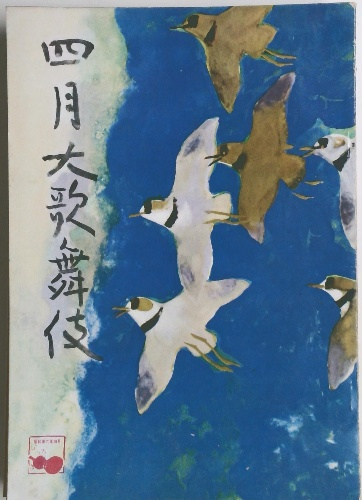 四月大歌舞伎